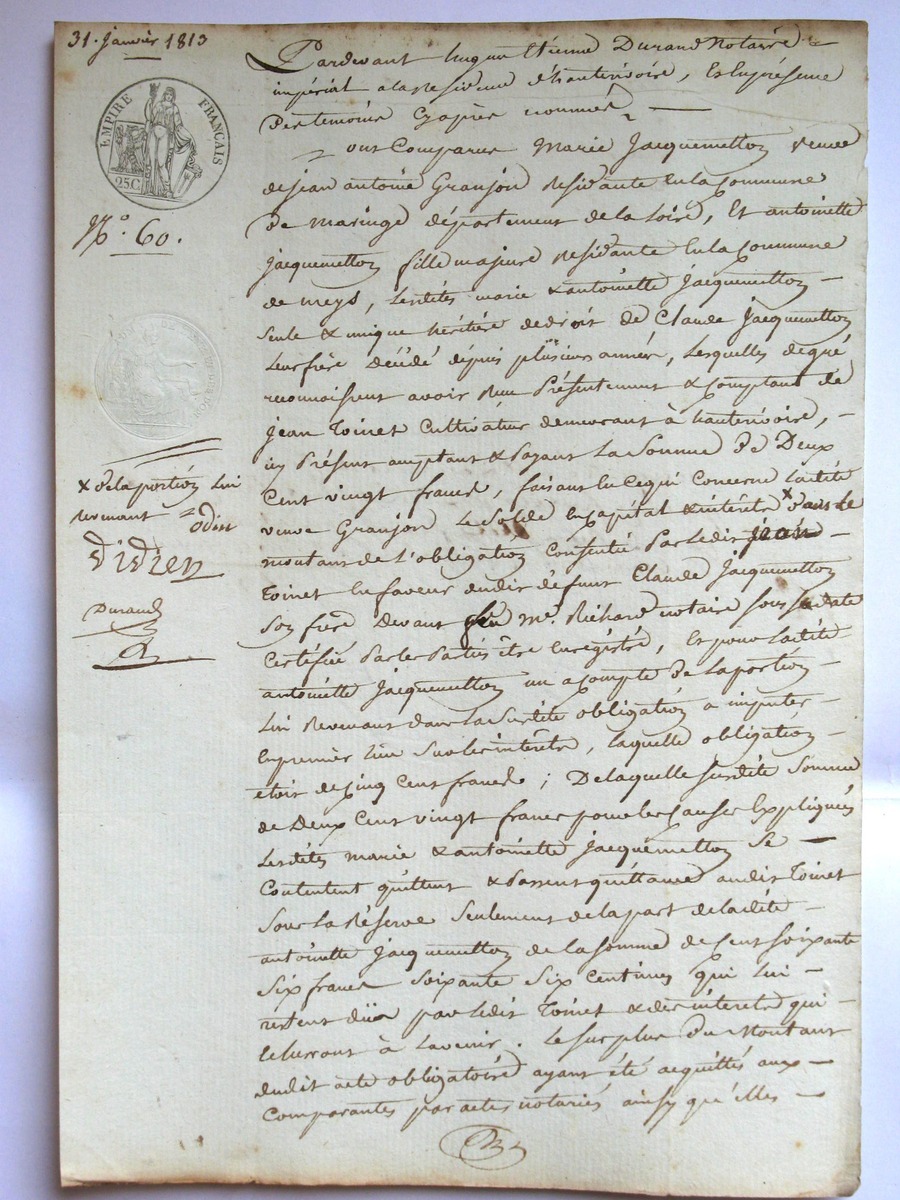 31. janvier 1813
EMPIRE FRANÇAIS
25C
N.o 60.
x de la portion lui
revenant odin
Didier
Durand
Pardevant hugue Etienne Durand Notaire
impérial a la residence d'hauterivoire, et en présence
des temoins cyaprès nommés
ont Comparus Marie Jacquemetton veuve
de jean antoine Granjon residante en la Commune
de maringe département de la loire, Et antoinette
jacquemetton fille majeure residante en la Commune
de meys, lesdites marie & antoinette jacquemetton
seule & unique héritière de droit de Claude Jacquemetton
leur frère décédé depuis plusieurs année, lesquelles de gré
reconnoissent avoir reçu Présentement & comptant de
jean Toinet Cultivateur demeurant à hauterivoire,
icy Présent comptant & payant la Somme de Deux
Cent vingt francs, faisant en Ce qui Concerne ladite
veuve Granjon le solde en capital & intérêts x dans le
montant de l'obligation Consentie Par ledit jean
Toinet en faveur dudit défunt Claude Jacquemetton
son frère Devant feu me. Richard notaire sous sa date
Certifiée Par les Parties être enrégistré, Et pour ladite
antoinette Jacquemetton un acompte de la portion
lui Revenant dans la Susdite obligation a imputer
en premier lieu sur les intérêts, laquelle obligation
étoit de Cinq Cent francs ; De laquelle susdite Somme
de Deux Cent vingt francs pour les causes Expliquées
lesdites marie & antoinette jacquemetton se
Contentent quittent & Passent quittance audit Toinet
sous la Réserve Seulement de la part de ladite
antoinette Jacquemetton de la somme de Cent soixante
six francs soixante six centimes qui lui
restent dûs par ledit Toinet & des intérêts qui
le surplus du Montant
dudit acte obligatoire ayant été acquittés aux
Comparantes par actes notariés ainsy qu'elles